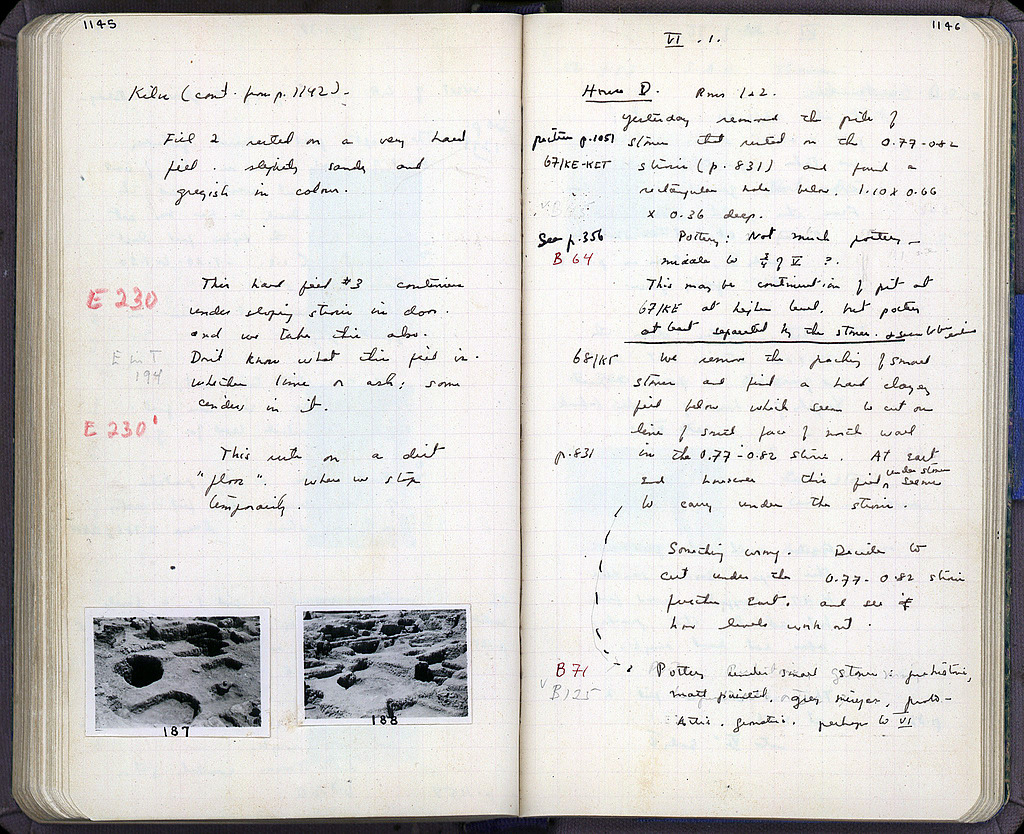 1145
Kiln (cont. from p. 1142).
Fill 2 rested on a very hard
fill. slightly sandy and
greyish in colour.
E 230
This hard fill #3 continues
under sloping strosis in door.
and we take this also.
E in T
194
Don't know what this fill is.
whether lime or ash; some
cinders in it.
E 230'
This rests on a dirt
"floor". where we stop
temporarily.
187
188
1146
VI . 1.
House D. Rms 1+2.
Yesterday removed the pile of
picture p.1051
stones that rested on the 0.77-0.82
67/KE-KST
strosis (p. 831) and found a
rectangular hole below. 1.10 x 0.66
x 0.36 deep.
See p.356
B 64
Pottery: Not much pottery -
middle to 3/4 of V ?
This may be continuation of pit at
67/KE at higher level, but
at least separated by the stones.
68/KST
We remove the packing of small
stones and find a hard clayey
fill below which seems to cut on
line of south face of north wall
p.831
in the 0.77-0.82 strosis. At East
End however this fill under stones seems
to carry under the strosis.
Something wrong. Decide to
cut under the 0.77-0.82 strosis
further East. and see if
how levels work out.
B 71
B125
Pottery small stones: prehistoric,
matt painted, grey minyan, proto-
Attic, geometric. perhaps to VI